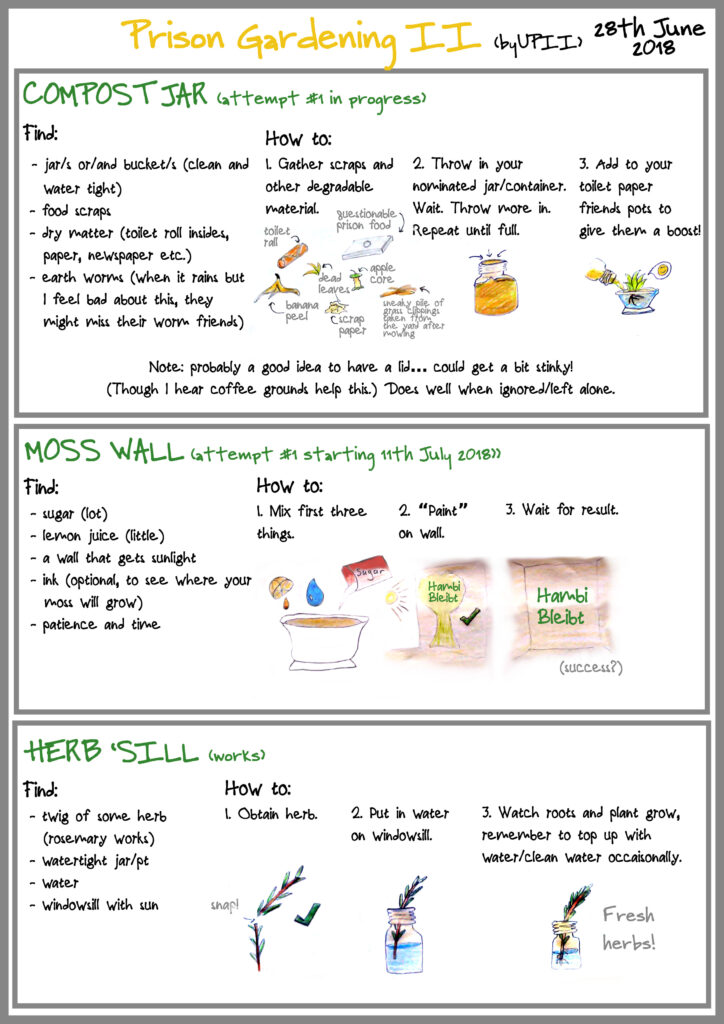 Prison Gardening II (byUPII) 28th June
2018
COMPOST JAR (attempt #1 in progress)
Find:
- jar/s or/and bucket/s (clean and
water tight)
- food scraps
- dry matter (toilet roll insides,
paper, newspaper etc.)
- earth worms (when it rains but
I feel bad about this, they
might miss their worm friends)
How to:
1. Gather scraps and
other degradable
material.
questionable
prison food
toilet
roll
dead
leaves
apple
core
banana
peel
scrap
paper
sneaky pile of
grass clippings
taken from
the yard after
mowing
2. Throw in your
nominated jar/container.
Wait. Throw more in.
Repeat until full.
3. Add to your
toilet paper
friends pots to
give them a boost!
Note: probably a good idea to have a lid... could get a bit stinky!
(Though I hear coffee grounds help this.) Does well when ignored/left alone.
MOSS WALL (attempt #1 starting 11th July 2018))
Find:
- sugar (lot)
- lemon juice (little)
- a wall that gets sunlight
- ink (optional, to see where your
moss will grow)
- patience and time
How to:
1. Mix first three
things.
Sugar
2. "Paint"
on wall.
Hambi
Bleibt
3. Wait for result.
Hambi
Bleibt
(success?)
HERB 'SILL (works)
Find:
- twig of some herb
(rosemary works)
- watertight jar/pt
- water
- windowsill with sun
How to:
1. Obtain herb.
snap!
2. Put in water
on windowsill.
3. Watch roots and plant grow,
remember to top up with
water/clean water occaisonally.
Fresh
herbs!